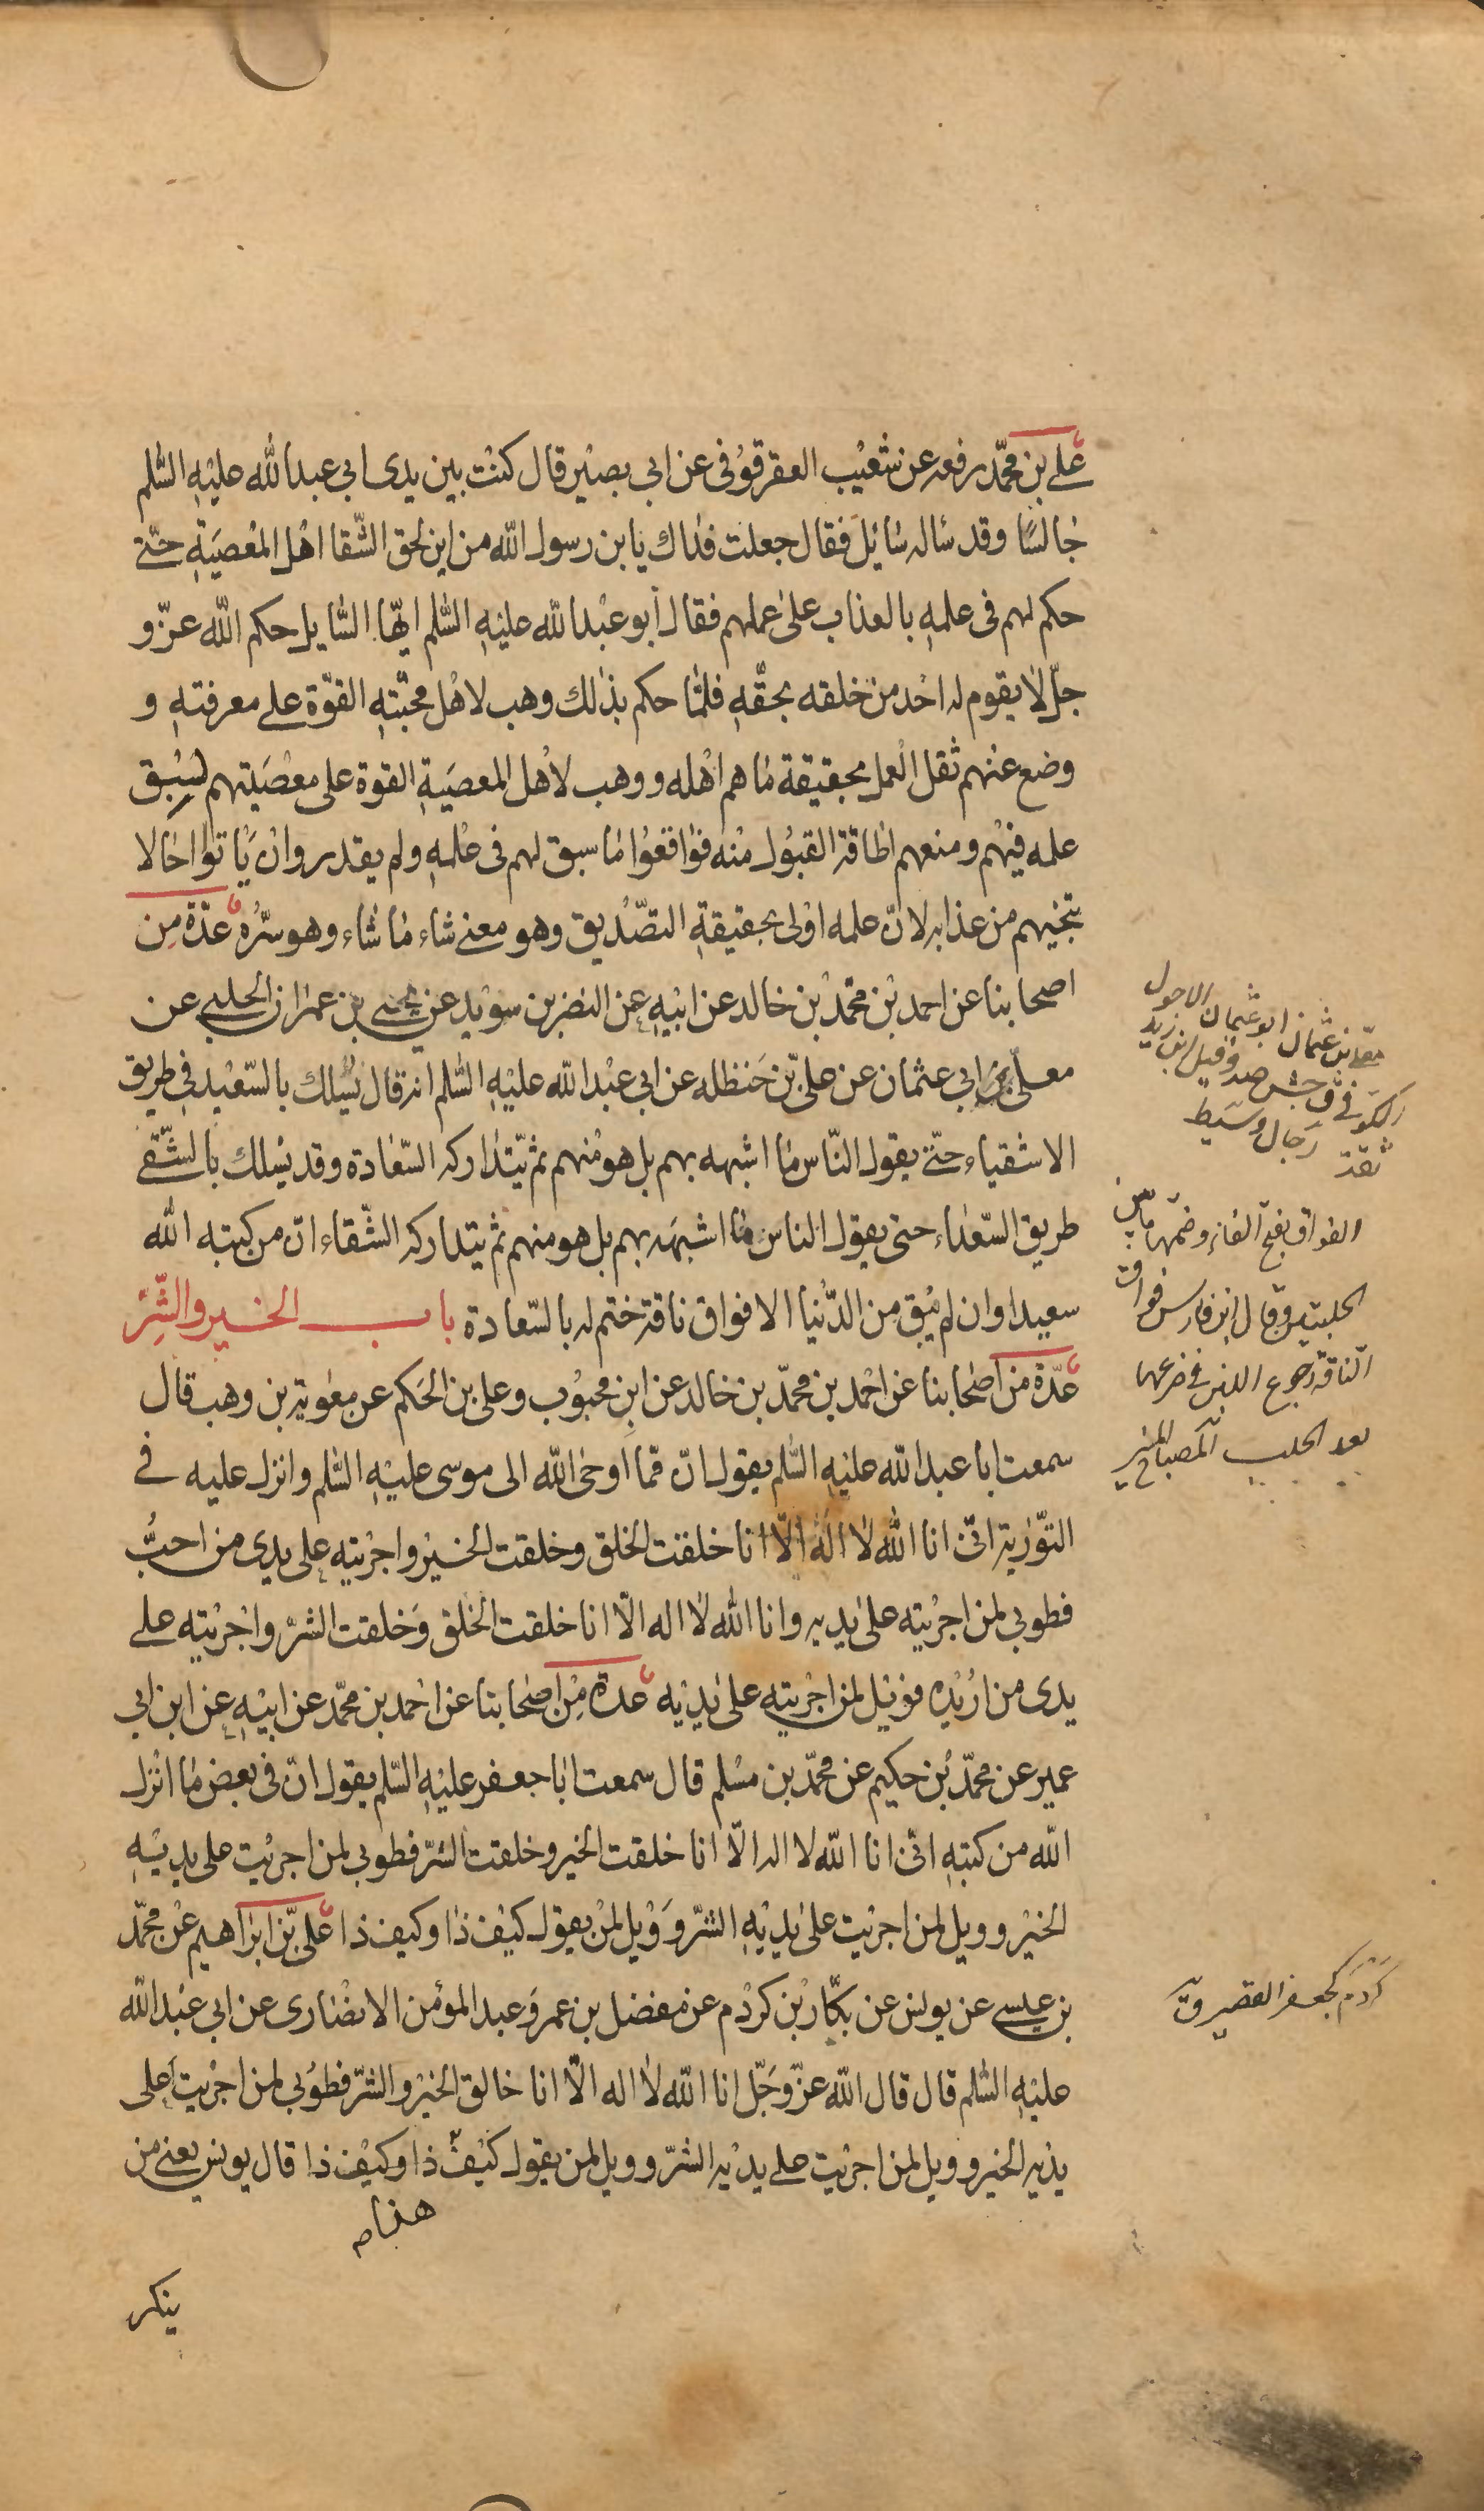 علي بن محمّد رفعه عن شعيب العقرقوفى عن ابى بصير قال كنت بين يدى ابى عبدالله عليه السّلم
جالسًا وقد ساله سائل فقال جعلت فداك يابن رسول الله من اين لحق الشّقا اهل المعصية حتّى
حكم لهم فى علمه بالعذاب على عملهم فقال ابو عبدالله عليه السّلم ايّها السّايل حكم الله عزّ و
جلّ لا يقوم له احد من خلقه بحقّه فلمّا حكم بذلك وهب لاهل محبّته القوّة على معرفته و
وضع عنهم ثقل العمل بحقيقة ما هم اهله و وهب لاهل المعصية القوة على معصيتهم لسبق
علمه فيهم و منعهم اطاقة القبول منه فواقعوا ما سبق لهم فى علمه ولم يقدروا ان ياتوا حالا
تنجيهم من عذابه لانّ علمه اولى بحقيقة التصّديق وهو معنى شاء ما شاء وهو سرّه عدّة من
اصحابنا عن احمد بن محمّد بن خالد عن ابيه عن النضر بن سويد عن يحيى بن عمران الحلبى عن
معلى بن ابى عثمان عن على بن حنظله عن ابى عبدالله عليه السّلم انه قال يسلك بالسّعيد فى طريق
الاشقياء حتّى يقول النّاس ما اشبهه بهم بل هو منهم ثم يتداركه السّعادة وقد يسلك بالشّقى
طريق السّعداء حتى يقول الناس ما اشبهه بهم بل هو منهم ثم يتداركه الشّقاء انّ من كتبه الله
سعيدا وان لم يبق من الدّنيا الا فواق ناقة ختم له بالسّعادة باب الخير والشّر
عدّة من اصحابنا عن احمد بن محمّد بن خالد عن ابن محبوب وعلى بن الحكم عن معوية بن وهب قال
سمعت ابا عبدالله عليه السّلم يقول انّ ممّا اوحى الله الى موسى عليه السّلم وانزل عليه فى
التّورية انّى انا الله لا اله الّا انا خلقت الخلق وخلقت الخير واجريته على يدى من احبّ
فطوبى لمن اجريته على يديه وانا الله لا اله الّا انا خلقت الخلق وخلقت الشرّ واجريته على
يدى من اريده فويل لمن اجريته على يديه عدة من اصحابنا عن احمد بن محمّد عن ابيه عن ابن ابى
عمير عن محمّد بن حكيم عن محمّد بن مسلم قال سمعت ابا جعفر عليه السّلم يقول انّ فى بعض ما انزل
الله من كتبه انّى انا الله لا اله الّا انا خلقت الخير وخلقت الشرّ فطوبى لمن اجريت على يديه
الخير و ويل لمن اجريت على يديه الشرّ و ويل لمن يقول كيف ذا وكيف ذا على بن ابراهيم عن محمّد
بن عيسى عن يونس عن بكّار بن كردم عن مفضل بن عمر وعبد المؤمن الانصارى عن ابى عبدالله
عليه السّلم قال قال الله عزّ وجلّ انا الله لا اله الّا انا خالق الخير والشرّ فطوبى لمن اجريت على
يديه الخير و ويل لمن اجريت على يديه الشرّ و ويل لمن يقول كيف ذا وكيف ذا قال يونس يعنى من
هذا
ينكر
معلى بن عثمان ابو عثمان الاحول
وقيل ابن زيد
الكوفى ق جش صه
ثقة رجال وسيط
الفواق بفتح الفاء وضمّها ما بين
الحلبتين وقال ابن فارس فواق
النّاقة رجوع اللبن فى ضرعها
بعد الحلب المصباح المنير
كردم كجعفر القصير ق